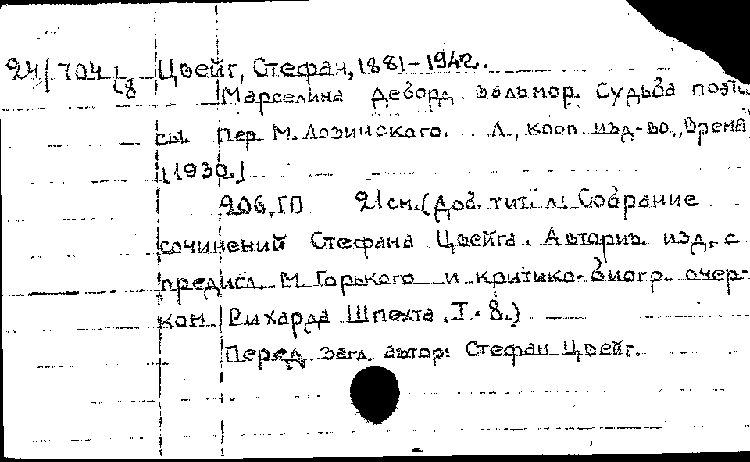 24/704 Цвейг, Стефан, 1881-1942.
Марселина Деборд вальмор. Судьба поэтес
сы. Пер. М. Лозинского. Л., кооп. изд-во „Время”
[1930.]
206, [2] 21 см. (Доб. тит. л.: Собрание
сочинений Стефана Цвейга. Авториз. изд. с
предисл. М. Горького и критико-биогр. очер-
ком Рихарда Шпехта. Т. 8.)
Перед загл. автор: Стефан Цвейг.